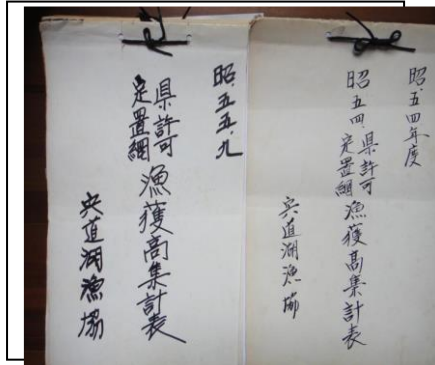 昭、五四年度
昭五四、県許可
定置網
漁獲高集計表
宍道湖漁協
昭、五五、九
県許可
定置網
漁獲高集計表
宍道湖漁協